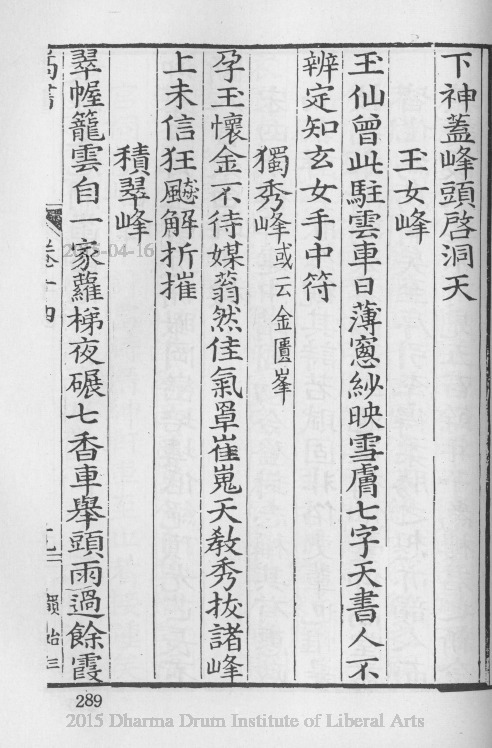 下神蓋峰頭啓洞天
王女峰
玉仙曾此駐雲車日薄窻紗映雪膚七字天書人不
辨定知玄女手中符
獨秀峰或云金匱峯
孕玉懷金不待媒蓊然佳氣罩崔嵬天敎秀拔諸峰
上未信狂飈解折摧
積翠峰
翠幄籠雲自一家蘿梯夜碾七香車舉頭雨過餘霞
卷十四
289
2015 Dharma Drum Institute of Liberal Arts